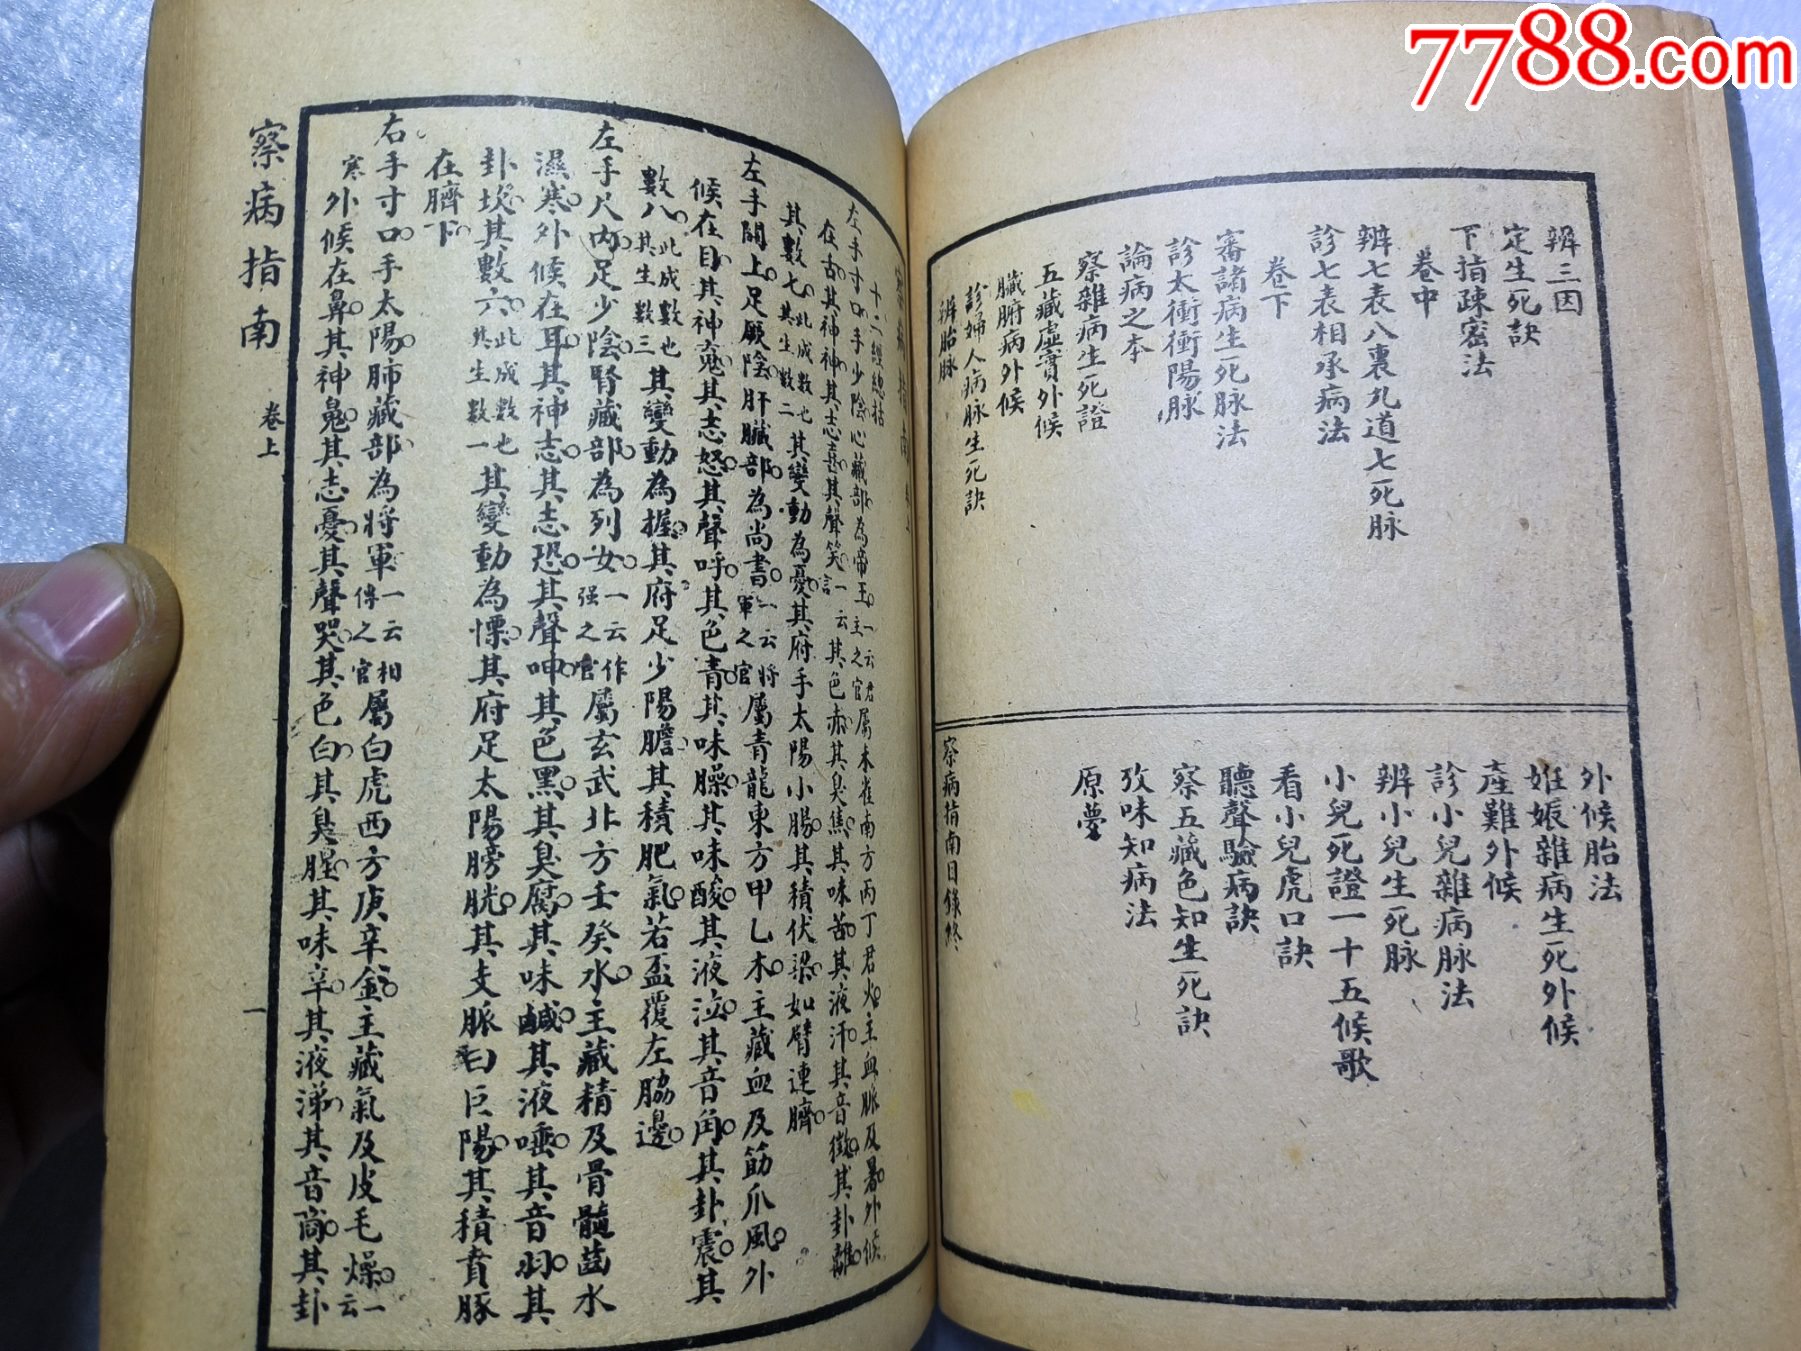 7788.com
辨三因
定生死訣
下指疎密法
卷中
辨七表八裏九道七死脉
診七表相承病法
卷下
審諸病生死脉法
診太衝衝陽脉
論病之本
察雜病生死證
五藏虛實外候
臟腑病外候
診婦人病脉生死訣
辨胎脉
外候胎法
妊娠雜病生死外候
產難外候
診小兒雜病脉法
辨小兒生死脉
小兒死證一十五候歌
看小兒虎口訣
聽聲驗病訣
察五藏色知生死訣
攷味知病法
原夢
察病指南目錄終
十二經總括
左手寸口手少陰心藏部為帝王一云君主之官屬朱雀南方丙丁君火主血脈及暑外候
在舌其神神其志喜其聲笑一云言其色赤其臭焦其味苦其液汗其音徵其卦離
其數七此成數也其生數二其變動為憂其府手太陽小腸其積伏梁如臂連臍
左手關上足厥陰肝臟部為尚書一云將軍之官屬青龍東方甲乙木主藏血及筋爪風外
候在目其神䰟其志怒其聲呼其色青其味臊其味酸其液泣其音角其卦震其
數八此成數也其生數三其變動為握其府足少陽膽其積肥氣若盃覆左脇邊
左手尺內足少陰腎藏部為列女一云作强之官屬玄武北方壬癸水主藏精及骨髓齒水
濕寒外候在耳其神志其志恐其聲呻其色黑其臭腐其味鹹其液唾其音羽其
卦坎其數六此成數也其生數一其變動為慄其府足太陽膀胱其支脈曰巨陽其積賁豚
在臍下
右手寸口手太陽肺藏部為將軍一云相傳之官屬白虎西方庚辛金主藏氣及皮毛燥一云
寒外候在鼻其神䰟其志憂其聲哭其色白其臭腥其味辛其液涕其音商其卦
察病指南
卷上
一